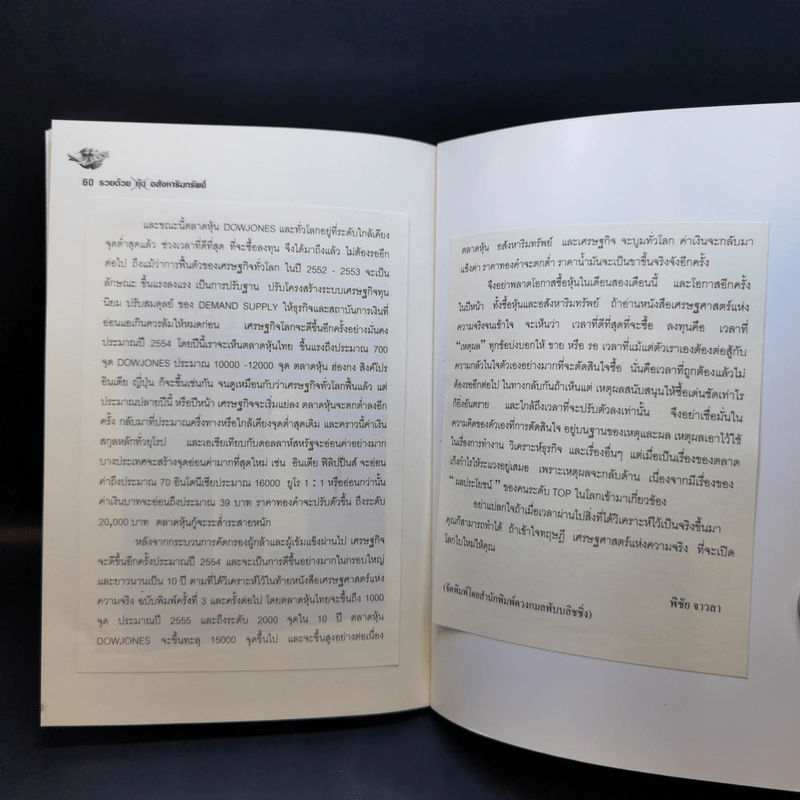 60 รวยด้วย หุ้น อสังหาริมทรัพย์
และขณะนี้ตลาดหุ้น DOWJONES และทั่วโลกอยู่ที่ระดับใกล้เคียง
จุดต่ำสุดแล้ว ช่วงเวลาที่ดีที่สุด ที่จะซื้อลงทุน จึงได้มาถึงแล้ว ไม่ต้องรออีก
ต่อไป ถึงแม้ว่าการฟื้นตัวของเศรษฐกิจทั่วโลก ในปี 2552 - 2553 จะเป็น
ลักษณะ ขึ้นแรงลงแรง เป็นการปรับฐาน ปรับโครงสร้างระบบเศรษฐกิจทุน
นิยม ปรับสมดุลย์ ของ DEMAND SUPPLY ให้ธุรกิจและสถาบันการเงินที่
อ่อนแอเกินควรล้มให้หมดก่อน เศรษฐกิจโลกจะดีขึ้นอีกครั้งอย่างมั่นคง
ประมาณปี 2554 โดยปีนี้เราจะเห็นตลาดหุ้นไทย ขึ้นแรงถึงประมาณ 700
จุด DOWJONES ประมาณ 10000 -12000 จุด ตลาดหุ้น ฮ่องกง สิงค์โปร
อินเดีย ญี่ปุ่น ก็จะขึ้นเช่นกัน จนดูเหมือนกับว่าเศรษฐกิจทั่วโลกฟื้นแล้ว แต่
ประมาณปลายปีนี้ หรือปีหน้า เศรษฐกิจจะเริ่มแย่ลง ตลาดหุ้นจะตกต่ำลงอีก
ครั้ง กลับมาที่ประมาณครึ่งทางหรือใกล้เคียงจุดต่ำสุดเดิม และคราวนี้ค่าเงิน
สกุลหลักทั่วยุโรป และเอเชียเทียบกับดอลลาห์สหรัฐจะอ่อนค่าอย่างมาก
บางประเทศจะสร้างจุดอ่อนค่ามากที่สุดใหม่ เช่น อินเดีย ฟิลิปปินส์ จะอ่อน
ค่าถึงประมาณ 70 อินโดนีเซียประมาณ 16000 ยูโร 1 : 1 หรืออ่อนกว่านั้น
ค่าเงินบาทจะอ่อนถึงประมาณ 39 บาท ราคาทองคำจะปรับตัวขึ้น ถึงระดับ
20,000 บาท ตลาดหุ้นกู้จะระส่ำระสายหนัก
หลังจากกระบวนการคัดกรองผู้กล้าและผู้เข้มแข็งผ่านไป เศรษฐกิจ
จะดีขึ้นอีกครั้งประมาณปี 2554 และจะเป็นการดีขึ้นอย่างมากในกรอบใหญ่
และยาวนานเป็น 10 ปี ตามที่ได้วิเคราะห์ไว้ในท้ายหนังสือเศรษฐศาสตร์แห่ง
ความจริง ฉบับพิมพ์ครั้งที่ 3 และครั้งต่อไป โดยตลาดหุ้นไทยจะขึ้นถึง 1000
จุด ประมาณปี 2555 และถึงระดับ 2000 จุดใน 10 ปี ตลาดหุ้น
DOWJONES จะขึ้นทะลุ 15000 จุดขึ้นไป และจะขึ้นสูงอย่างต่อเนื่อง
ตลาดหุ้น อสังหาริมทรัพย์ และเศรษฐกิจ จะบูมทั่วโลก ค่าเงินจะกลับมา
แข็งค่า ราคาทองคำจะตกต่ำ ราคาน้ำมันจะเป็นขาขึ้นจริงจังอีกครั้ง
จึงอย่าพลาดโอกาสซื้อหุ้นในเดือนสองเดือนนี้ และโอกาสอีกครั้ง
ในปีหน้า ทั้งซื้อหุ้นและอสังหาริมทรัพย์ ถ้าอ่านหนังสือเศรษฐศาสตร์แห่ง
ความจริงจนเข้าใจ จะเห็นว่า เวลาที่ดีที่สุดที่จะซื้อ ลงทุนคือ เวลาที่
"เหตุผล" ทุกข้อบ่งบอกให้ ขาย หรือ รอ เวลาที่แม้แต่ตัวเราเองต้องต่อสู้กับ
ความกลัวในใจตัวเองอย่างมากที่จะตัดสินใจซื้อ นั่นคือเวลาที่ถูกต้องแล้วไม่
ต้องรออีกต่อไป ในทางกลับกันถ้าเห็นแต่ เหตุผลสนับสนุนให้ซื้อเด่นชัดเท่าไร
ก็ยิ่งอันตราย และใกล้ถึงเวลาที่จะปรับตัวลงเท่านั้น จึงอย่าเชื่อมั่นใน
ความคิดของตัวเองที่การตัดสินใจ อยู่บนฐานของเหตุและผล เหตุผลเอาไว้ใช้
ในเรื่องการทำงาน วิเคราะห์ธุรกิจ และเรื่องอื่นๆ แต่เมื่อเป็นเรื่องของตลาด
เก็งกำไรให้ระแวงอยู่เสมอ เพราะเหตุผลจะกลับด้าน เนื่องจากมีเรื่องของ
" ผลประโยชน์ " ของคนระดับ TOP ในโลกเข้ามาเกี่ยวข้อง
อย่าแปลกใจถ้าเมื่อเวลาผ่านไปสิ่งที่ได้วิเคราะห์ไว้เป็นจริงขึ้นมา
คุณก็สามารถทำได้ ถ้าเข้าใจทฤษฎี เศรษฐศาสตร์แห่งความจริง ที่จะเปิด
โลกใบใหม่ให้คุณ
พิชัย จาวลา
(จัดพิมพ์โดยสำนักพิมพ์ดวงกมลพับบลิชชิ่ง)